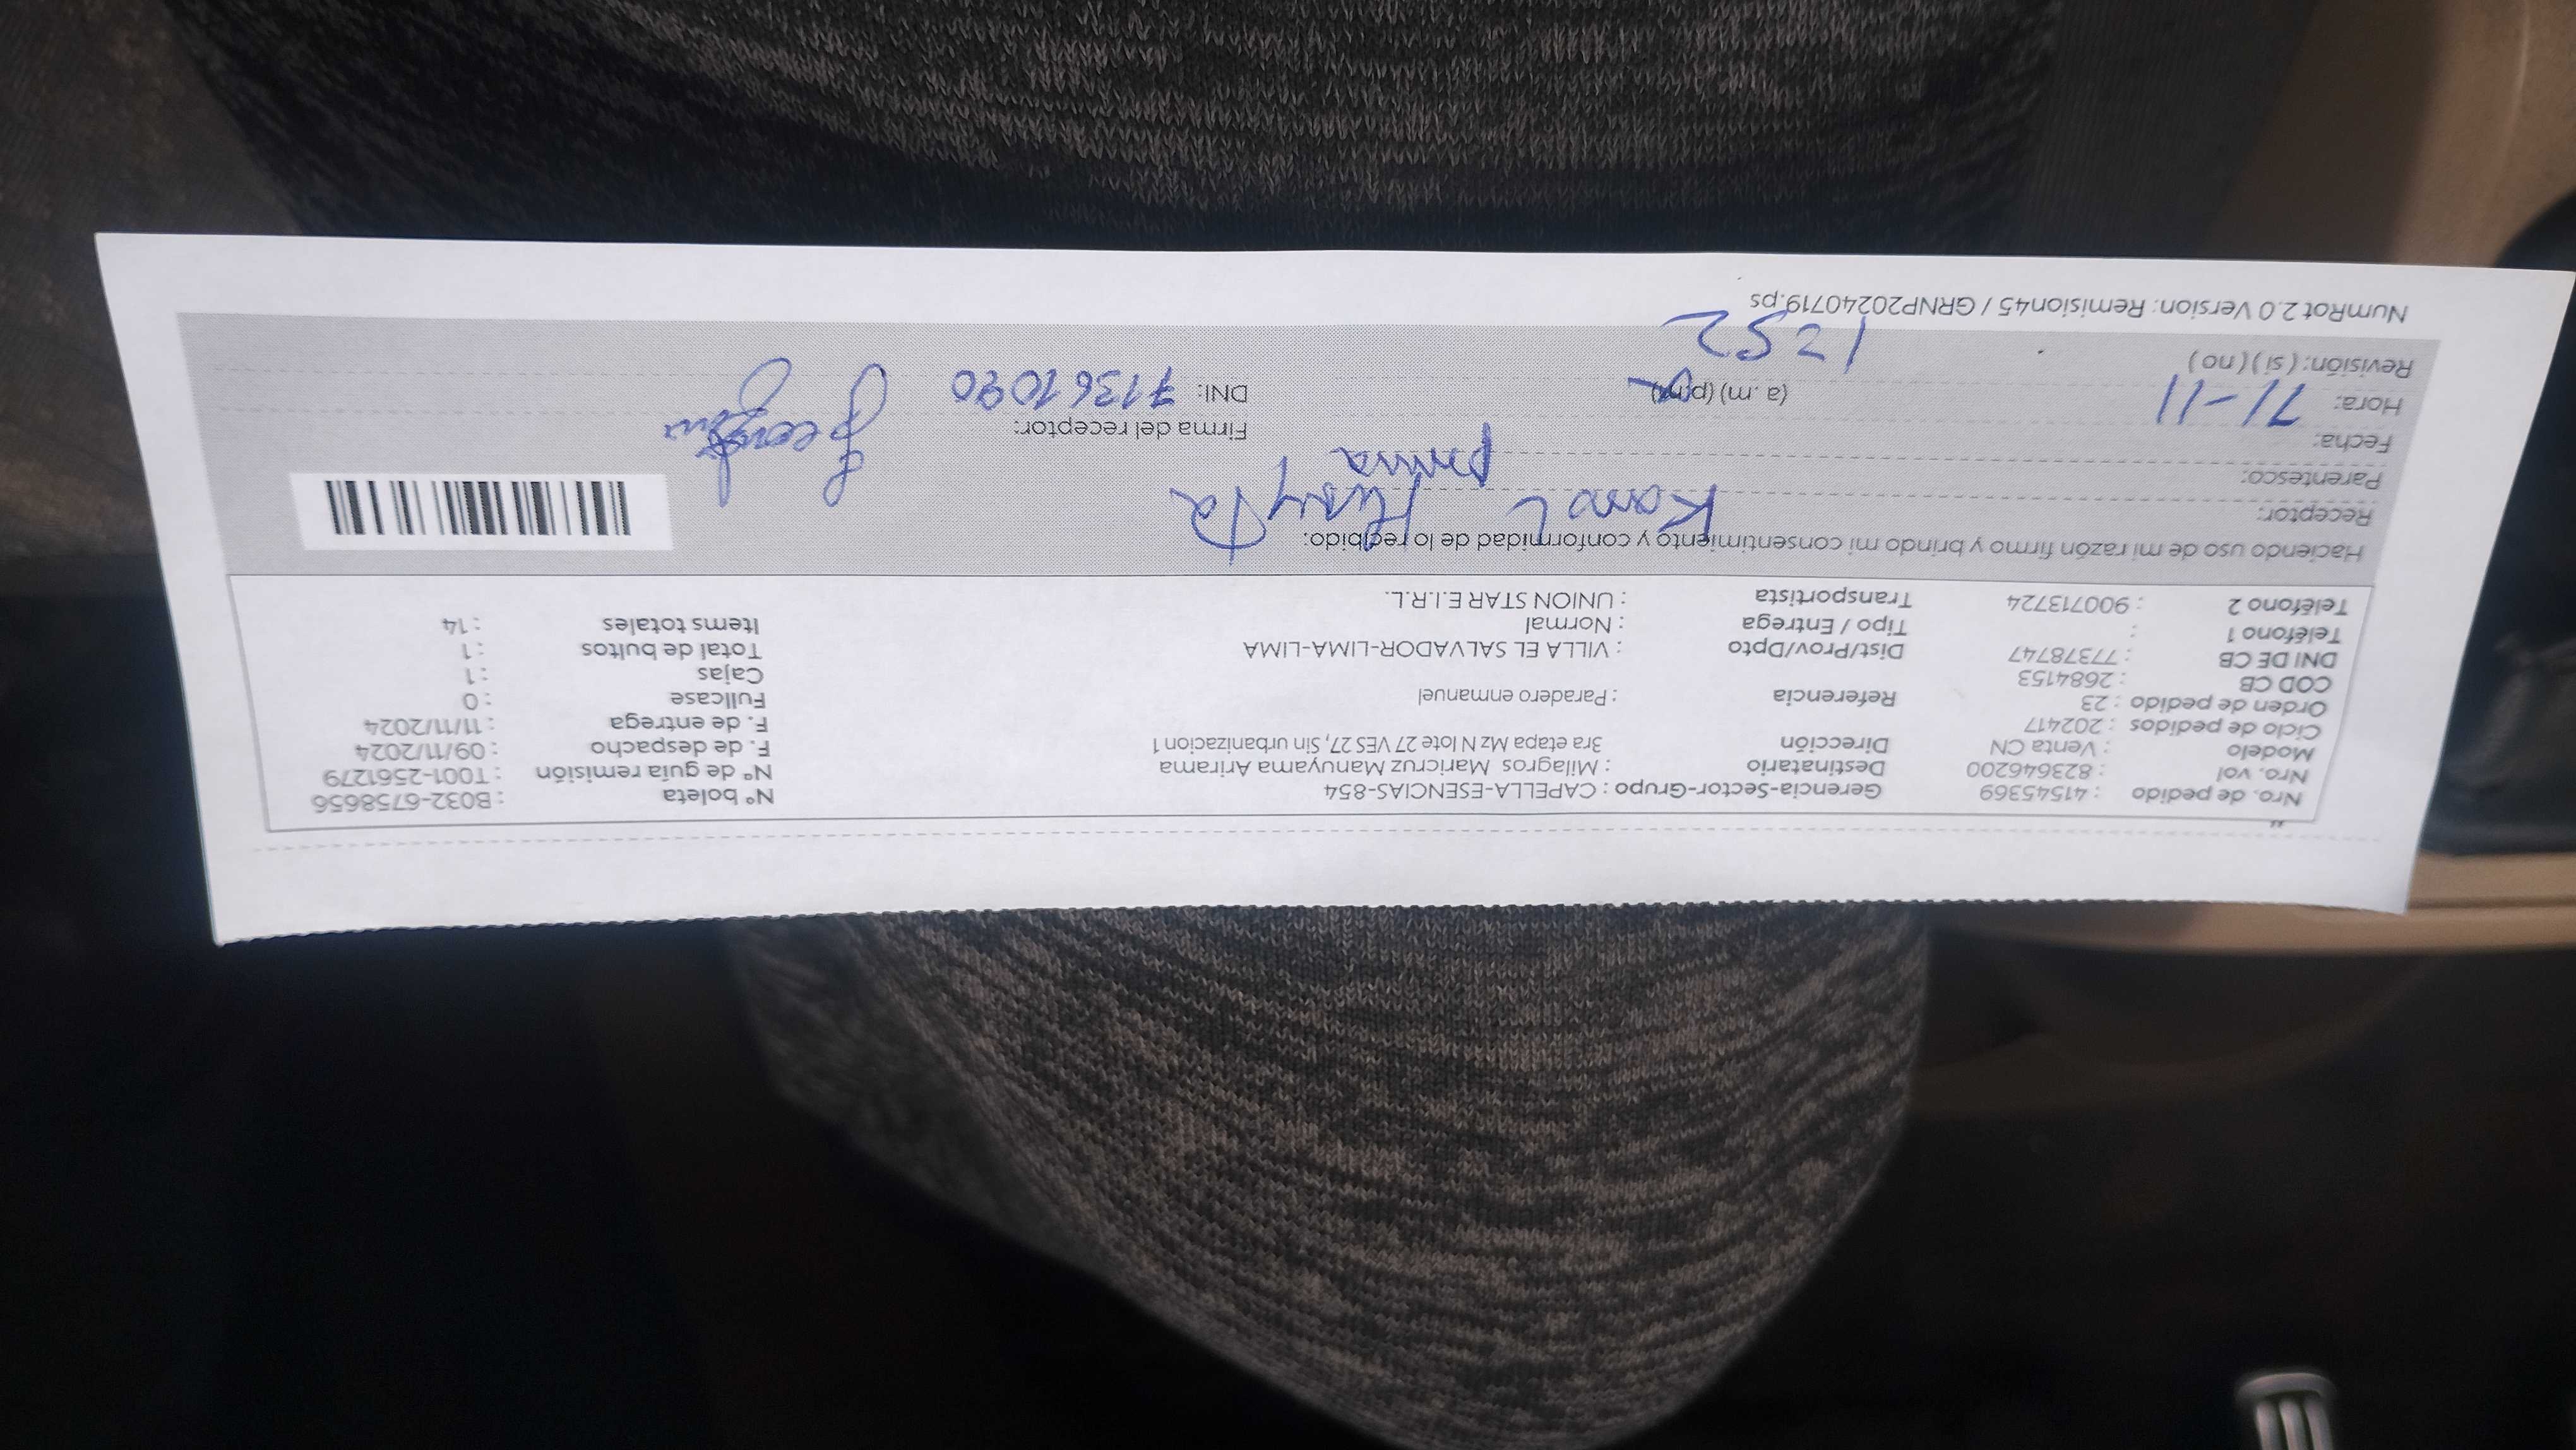 Nro. de pedido : 41545369 Gerencia-Sector-Grupo : CAPELLA-ESENCIAS-854 N° boleta : B032-6758656
Nro. vol : 823646200 Destinatario : Milagros Maricruz Manuyama Arirama N° de guía remisión : T001-2561279
Modelo : Venta CN Dirección 3ra etapa Mz N lote 27 VES 27, Sin urbanizacion 1 F. de despacho : 09/11/2024
Ciclo de pedidos : 202417 F. de entrega : 11/11/2024
Orden de pedido : 23 Referencia : Paradero enmanuel Fullcase : 0
COD CB : 2684153 Cajas : 1
DNI DE CB : 77378747 Dist/Prov/Dpto : VILLA EL SALVADOR-LIMA-LIMA Total de bultos : 1
Teléfono 1 : Tipo / Entrega : Normal Items totales : 14
Teléfono 2 : 900713724 Transportista : UNION STAR E.I.R.L.
Haciendo uso de mi razón firmo y brindo mi consentimiento y conformidad de lo recibido:
Receptor:
Parentesco: prima
Fecha: Firma del receptor:
Hora: 11-11 (a. m) (p.m) DNI: 71361090
Revisión: ( si ) ( no ) 1252
NumRot 2.0 Version: Remision45 / GRNP20240719.ps